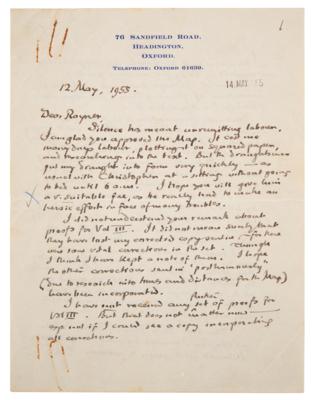 76 Sandfield Road,
Headington,
Oxford.
Telephone: Oxford 61639.
14 MAY
12 May, 1955.
Dear Rayner,
Silence has meant unremitting labour.
I am glad you approved the Map. It cost me
many days labour, plotting it on squared paper,
and to the text. But the draughtsman
got my draught into form very quickly — as
usual with Christopher at a sitting without going
to bed until 6 a.m. I hope you will give him
a v. suitable fee, as he really had to make an
heroic effort in face of many troubles.
I did not understand your remark about
proofs for Vol III. It did not mean surely that
they have lost my corrected copy
some vital corrections in the set. Though
I think I have kept a note of them. I hope
the other corrections sent in "posthumously"
(due to research into times and distances for the Map)
have been incorporated.
I have not received any set of proofs for
Vol III. But that does not matter now
if I could see a copy incorporating
all corrections.